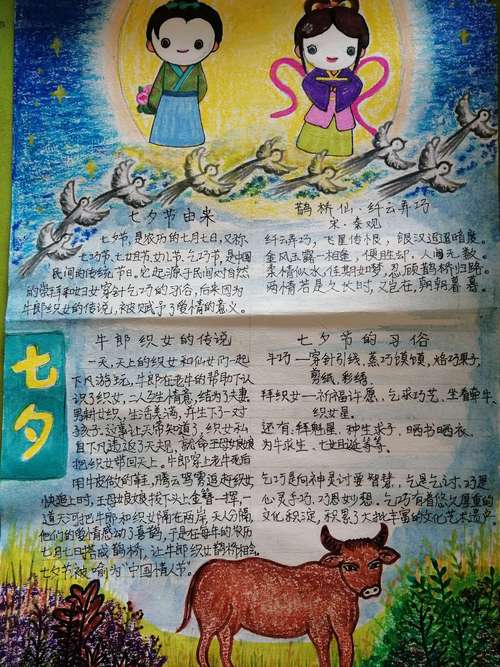 七夕节由来
七夕节,是农历的七月七日,又称、
七巧节、七姐节、女儿节、乞巧节,是中国
民间的传统节日。它起源于民间对自然
的崇拜和妇女穿针乞巧的习俗,后来因为
牛郎织女的传说,被赋予了爱情的意义。
鹊桥仙·纤云弄巧
宋·秦观
纤云弄巧,飞星传恨,银汉迢迢暗度。
金风玉露一相逢,便胜却,人间无数。
柔情似水,佳期如梦,忍顾鹊桥归路。
两情若是久长时,又岂在,朝朝暮暮。
七夕
牛郎织女的传说
一天,天上的织女和仙女们一起
下凡游玩,牛郎在老牛的帮助下认
识了织女,二人互生情意,结为了夫妻
男耕女织,生活美满,并生下了一对
孩子。这事让天帝知道了,织女私
自下凡违返了天规,就命王母娘娘
把织女带回天上。牛郎穿上老牛死后
用牛皮做的鞋,腾云驾雾追赶织女
快追上时,王母娘娘拔下头上金簪一挥,一
道天河把牛郎和织女隔在两岸,天人分隔
他们的爱情感动了喜鹊,于是在每年的农历
七月七日搭成鹊桥,让牛郎织女鹊桥相会
七夕节被喻为"中国情人节"。
七夕节的习俗
乞巧——穿针引线、蒸巧馍馍、烙巧果子、
剪纸、彩绣
拜织女——祈福许愿、乞求巧艺、坐看牵牛、
织女星。
还有,拜魁星、种生求子、晒书晒衣、
为牛求生、七女诞等等。
乞巧是向神灵讨要智慧,乞是乞讨,巧是
心灵手巧,巧思妙想,乞巧有着悠久厚重的
文化积淀,积累了大批丰富的文化艺术遗产